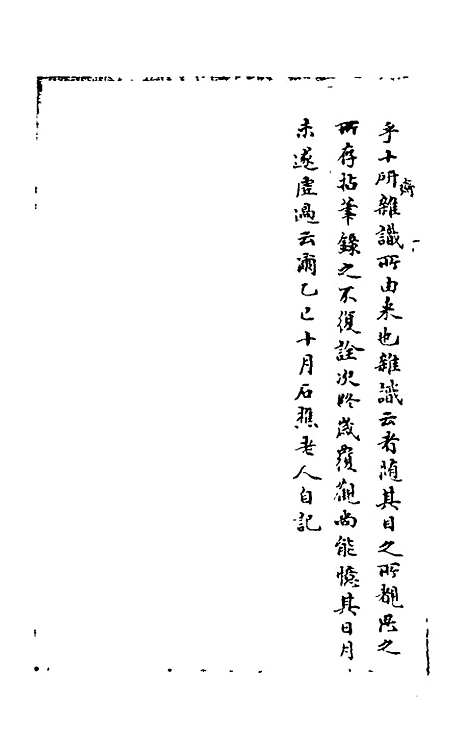 乎十研齋雜識所由来也雜識云者随其目之所覩思之
所存拈筆錄之不復詮次終歲覆觀尚能憶其日月
未遂虛過云爾乙巳十月石樵老人自記